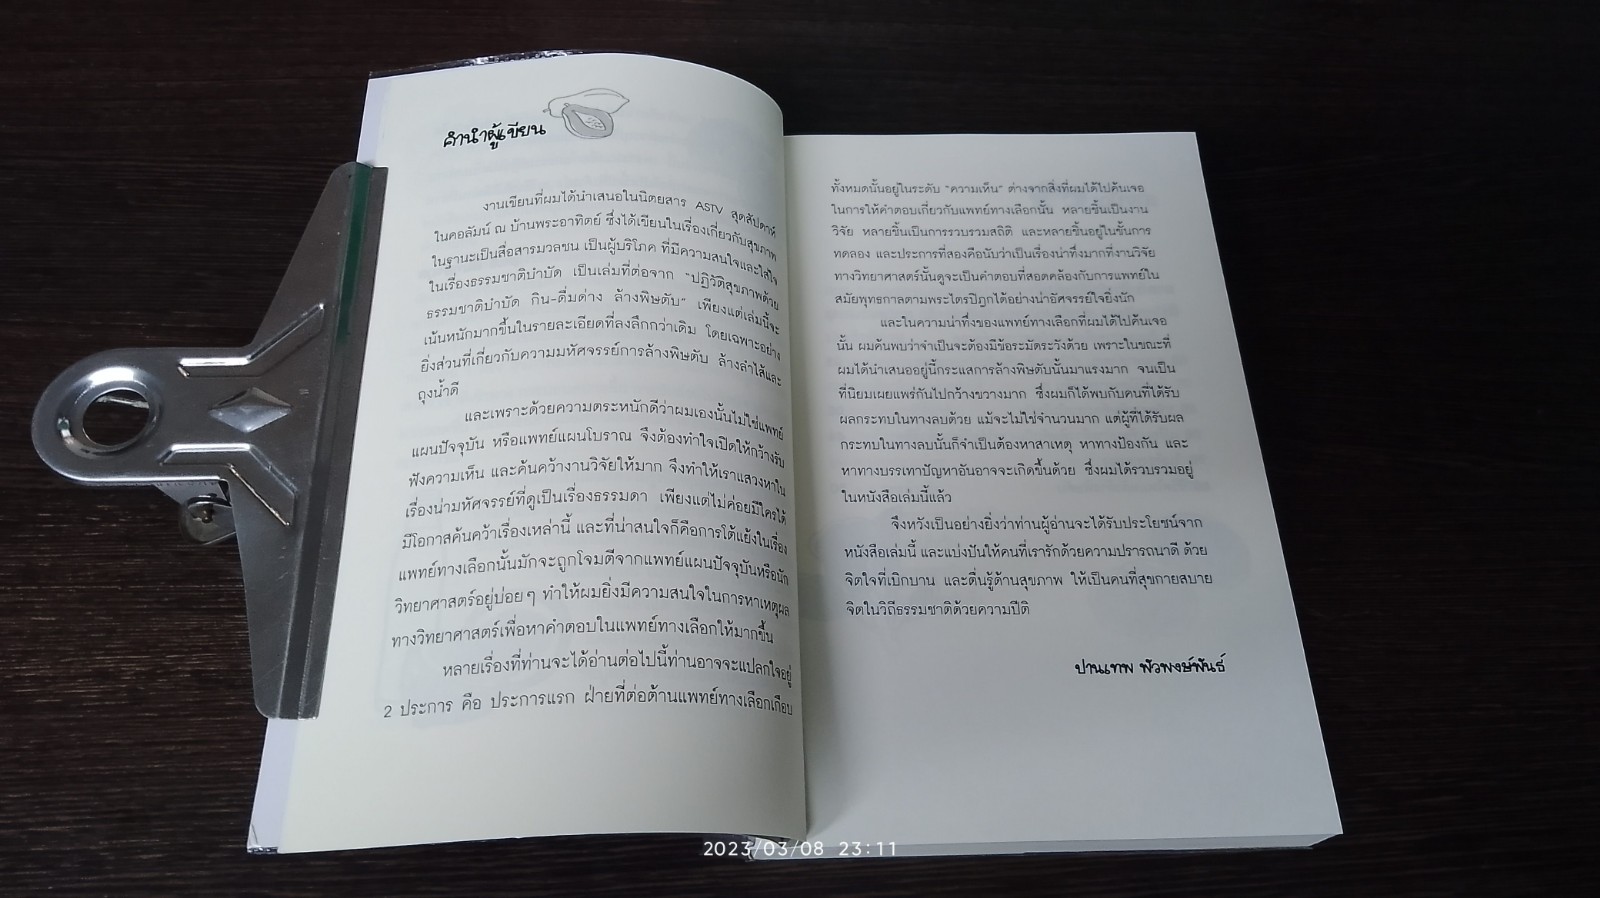 คำนำผู้เขียน
งานเขียนที่ผมได้นำเสนอในนิตยสาร ASTV สุดสัปดาห์
ในคอลัมน์ ณ บ้านพระอาทิตย์ ซึ่งได้เขียนในเรื่องเกี่ยวกับสุขภาพ
ในฐานะเป็นสื่อสารมวลชน เป็นผู้บริโภค ที่มีความสนใจและใส่ใจ
ในเรื่องธรรมชาติบำบัด เป็นเล่มที่ต่อจาก “ปฏิวัติสุขภาพด้วย
ธรรมชาติบำบัด กิน-ดื่มด่าง ล้างพิษตับ” เพียงแต่เล่มนี้จะ
เน้นหนักมากขึ้นในรายละเอียดที่ลงลึกกว่าเดิม โดยเฉพาะอย่าง
ยิ่งส่วนที่เกี่ยวกับความมหัศจรรย์การล้างพิษตับ ล้างลำไส้และ
ถุงน้ำดี
และเพราะด้วยความตระหนักดีว่าผมเองนั้นไม่ใช่แพทย์
แผนปัจจุบัน หรือแพทย์แผนโบราณ จึงต้องทำใจเปิดให้กว้างรับ
ฟังความเห็น และค้นคว้างานวิจัยให้มาก จึงทำให้เราแสวงหาใน
เรื่องน่ามหัศจรรย์ที่ดูเป็นเรื่องธรรมดา เพียงแต่ไม่ค่อยมีใครได้
มีโอกาสค้นคว้าเรื่องเหล่านี้ และที่น่าสนใจก็คือการโต้แย้งในเรื่อง
แพทย์ทางเลือกนั้นมักจะถูกโจมตีจากแพทย์แผนปัจจุบันหรือนัก
วิทยาศาสตร์อยู่บ่อยๆ ทำให้ผมยิ่งมีความสนใจในการหาเหตุผล
ทางวิทยาศาสตร์เพื่อหาคำตอบในแพทย์ทางเลือกให้มากขึ้น
หลายเรื่องที่ท่านจะได้อ่านต่อไปนี้ท่านอาจจะแปลกใจอยู่
2 ประการ คือ ประการแรก ฝ่ายที่ต่อต้านแพทย์ทางเลือกเกือบ
ทั้งหมดนั้นอยู่ในระดับ “ความเห็น” ต่างจากสิ่งที่ผมได้ไปค้นเจอ
ในการให้คำตอบเกี่ยวกับแพทย์ทางเลือกนั้น หลายชิ้นเป็นงาน
วิจัย หลายชิ้นเป็นการรวบรวมสถิติ และหลายชิ้นอยู่ในขั้นการ
ทดลอง และประการที่สองคือนับว่าเป็นเรื่องน่าทึ่งมากที่งานวิจัย
ทางวิทยาศาสตร์นั้นดูจะเป็นคำตอบที่สอดคล้องกับการแพทย์ใน
สมัยพุทธกาลตามพระไตรปิฎกได้อย่างน่าอัศจรรย์ใจยิ่งนัก
และในความน่าทึ่งของแพทย์ทางเลือกที่ผมได้ไปค้นเจอ
นั้น ผมค้นพบว่าจำเป็นจะต้องมีข้อระมัดระวังด้วย เพราะในขณะที่
ผมได้นำเสนออยู่นี้กระแสการล้างพิษตับนั้นมาแรงมาก จนเป็น
ที่นิยมเผยแพร่กันไปกว้างขวางมาก ซึ่งผมก็ได้พบกับคนที่ได้รับ
ผลกระทบในทางลบด้วย แม้จะไม่ใช่จำนวนมาก แต่ผู้ที่ได้รับผล
กระทบในทางลบนั้นก็จำเป็นต้องหาสาเหตุ หาทางป้องกัน และ
หาทางบรรเทาปัญหาอันอาจจะเกิดขึ้นด้วย ซึ่งผมได้รวบรวมอยู่
ในหนังสือเล่มนี้แล้ว
จึงหวังเป็นอย่างยิ่งว่าท่านผู้อ่านจะได้รับประโยชน์จาก
หนังสือเล่มนี้ และแบ่งปันให้คนที่เรารักด้วยความปรารถนาดี ด้วย
จิตใจที่เบิกบาน และตื่นรู้ด้านสุขภาพ ให้เป็นคนที่สุขกายสบาย
จิตในวิถีธรรมชาติด้วยความปีติ
ปานเทพ พัวพงษ์พันธ์
2023/03/08 23:11